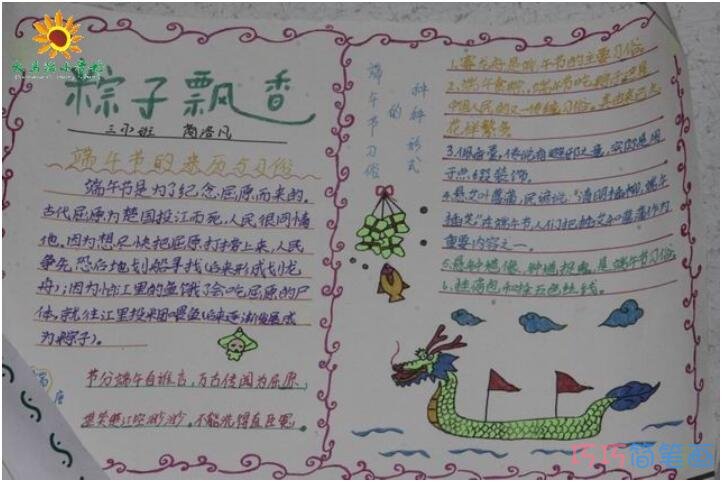 粽子飘香
三(2)班
端午节的来历与习俗
端午节是为了纪念屈原而来的。
古代屈原为楚国投江而死,人民很同情
他。因为想尽快把屈原打捞上来,人民
争先恐后地划船寻找(后来形成划龙
舟);因为怕江里的鱼饿了会吃屈原的尸
体,就往江里投米团喂鱼(后来逐渐发展成
为粽子)。
节分端午自谁言,万古传闻为屈原;
堪笑楚江空渺渺,不能洗得直臣冤。
端午节习俗
的
种种形式
1.赛龙舟是端午节的主要习俗
2.端午食粽,端午节吃粽子这是
中国人民的又一传统习俗。
花样繁多
3.佩香囊,传说有避邪之意,实际是用
于点缀装饰。
4.悬艾叶菖蒲,民谚说:“清明插柳,端午
插艾”在端午节,人们把插艾和菖蒲作为
重要内容之一。
5.悬钟馗像,钟馗捉鬼,是端午节习俗
6.挂荷包和拴五色丝线。
巧巧简笔画